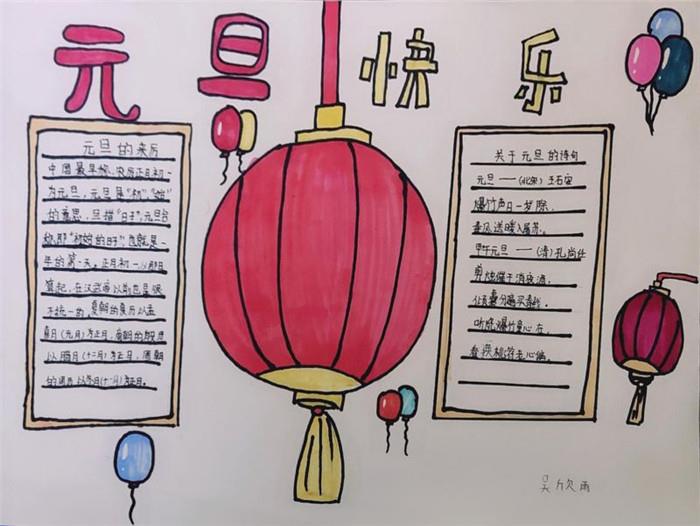 元旦快乐
元旦的来历
中国最早称农历正月初一
为元旦，元旦是"初""始"
的意思，旦指"日子"，元旦合
称即"初始的日子"，也就是一
年的第一天。正月初一从哪日
算起，在汉武帝以前也是很
不统一的，夏朝的夏历以孟
喜月（元月）为正月，商朝的殷历
以腊月（十二月）为正月，周朝
的周历以冬月（十一月）为正月。
关于元旦的诗句
元旦——（北宋）王石安
爆竹声曰一岁除，
春风送暖入屠苏。
甲午元旦——（清）孔尚任
剪烛催干消夜酒，
倾囊分遍买春钱。
听烧爆竹童心在，
看换桃符老心偏。
吴欣雨